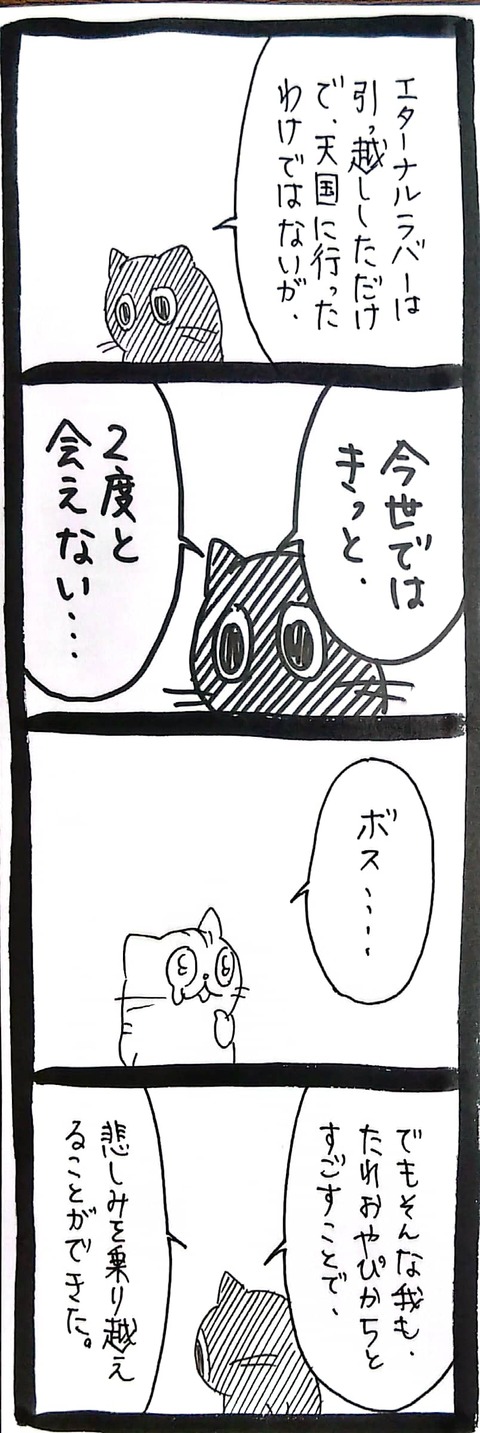 エターナルラバーは
引っ越ししただけ
で、天国に行った
わけではないが、
今世では
きっと、
2度と
会えない…
ボス……
でもそんな我も、
たれおやぴかちと
すごすことで、
悲しみを乗り越え
ることができた。